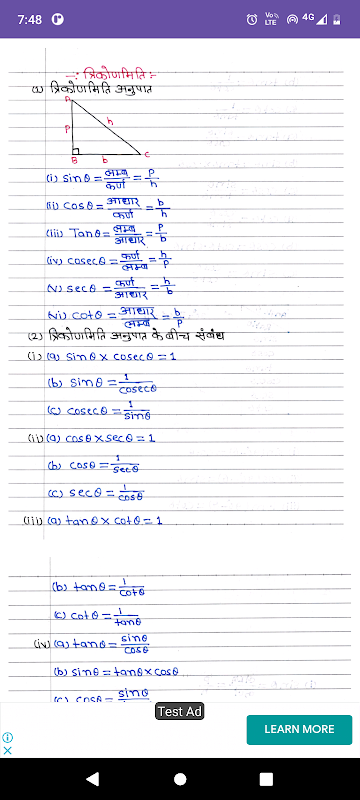 7:48 Vo)) LTE 4G
-: त्रिकोणमिति :-
(1) त्रिकोणमिति अनुपात
A
P h
B b C
(i) sinθ = लम्ब/कर्ण = P/h
(ii) cosθ = आधार/कर्ण = b/h
(iii) Tanθ = लम्ब/आधार = P/b
(iv) cosecθ = कर्ण/लम्ब = h/P
(v) secθ = कर्ण/आधार = h/b
(vi) cotθ = आधार/लम्ब = b/P
(2) त्रिकोणमिति अनुपात के बीच संबंध
(i) (a) sinθ x cosecθ = 1
(b) sinθ = 1/cosecθ
(c) cosecθ = 1/sinθ
(ii) (a) cosθ x secθ = 1
(b) cosθ = 1/secθ
(c) secθ = 1/cosθ
(iii) (a) tanθ x cotθ = 1
(b) tanθ = 1/cotθ
(c) cotθ = 1/tanθ
(iv) (a) tanθ = sinθ/cosθ
(b) sinθ = tanθ x cosθ
(c) cosθ = sinθ
Test Ad
LEARN MORE